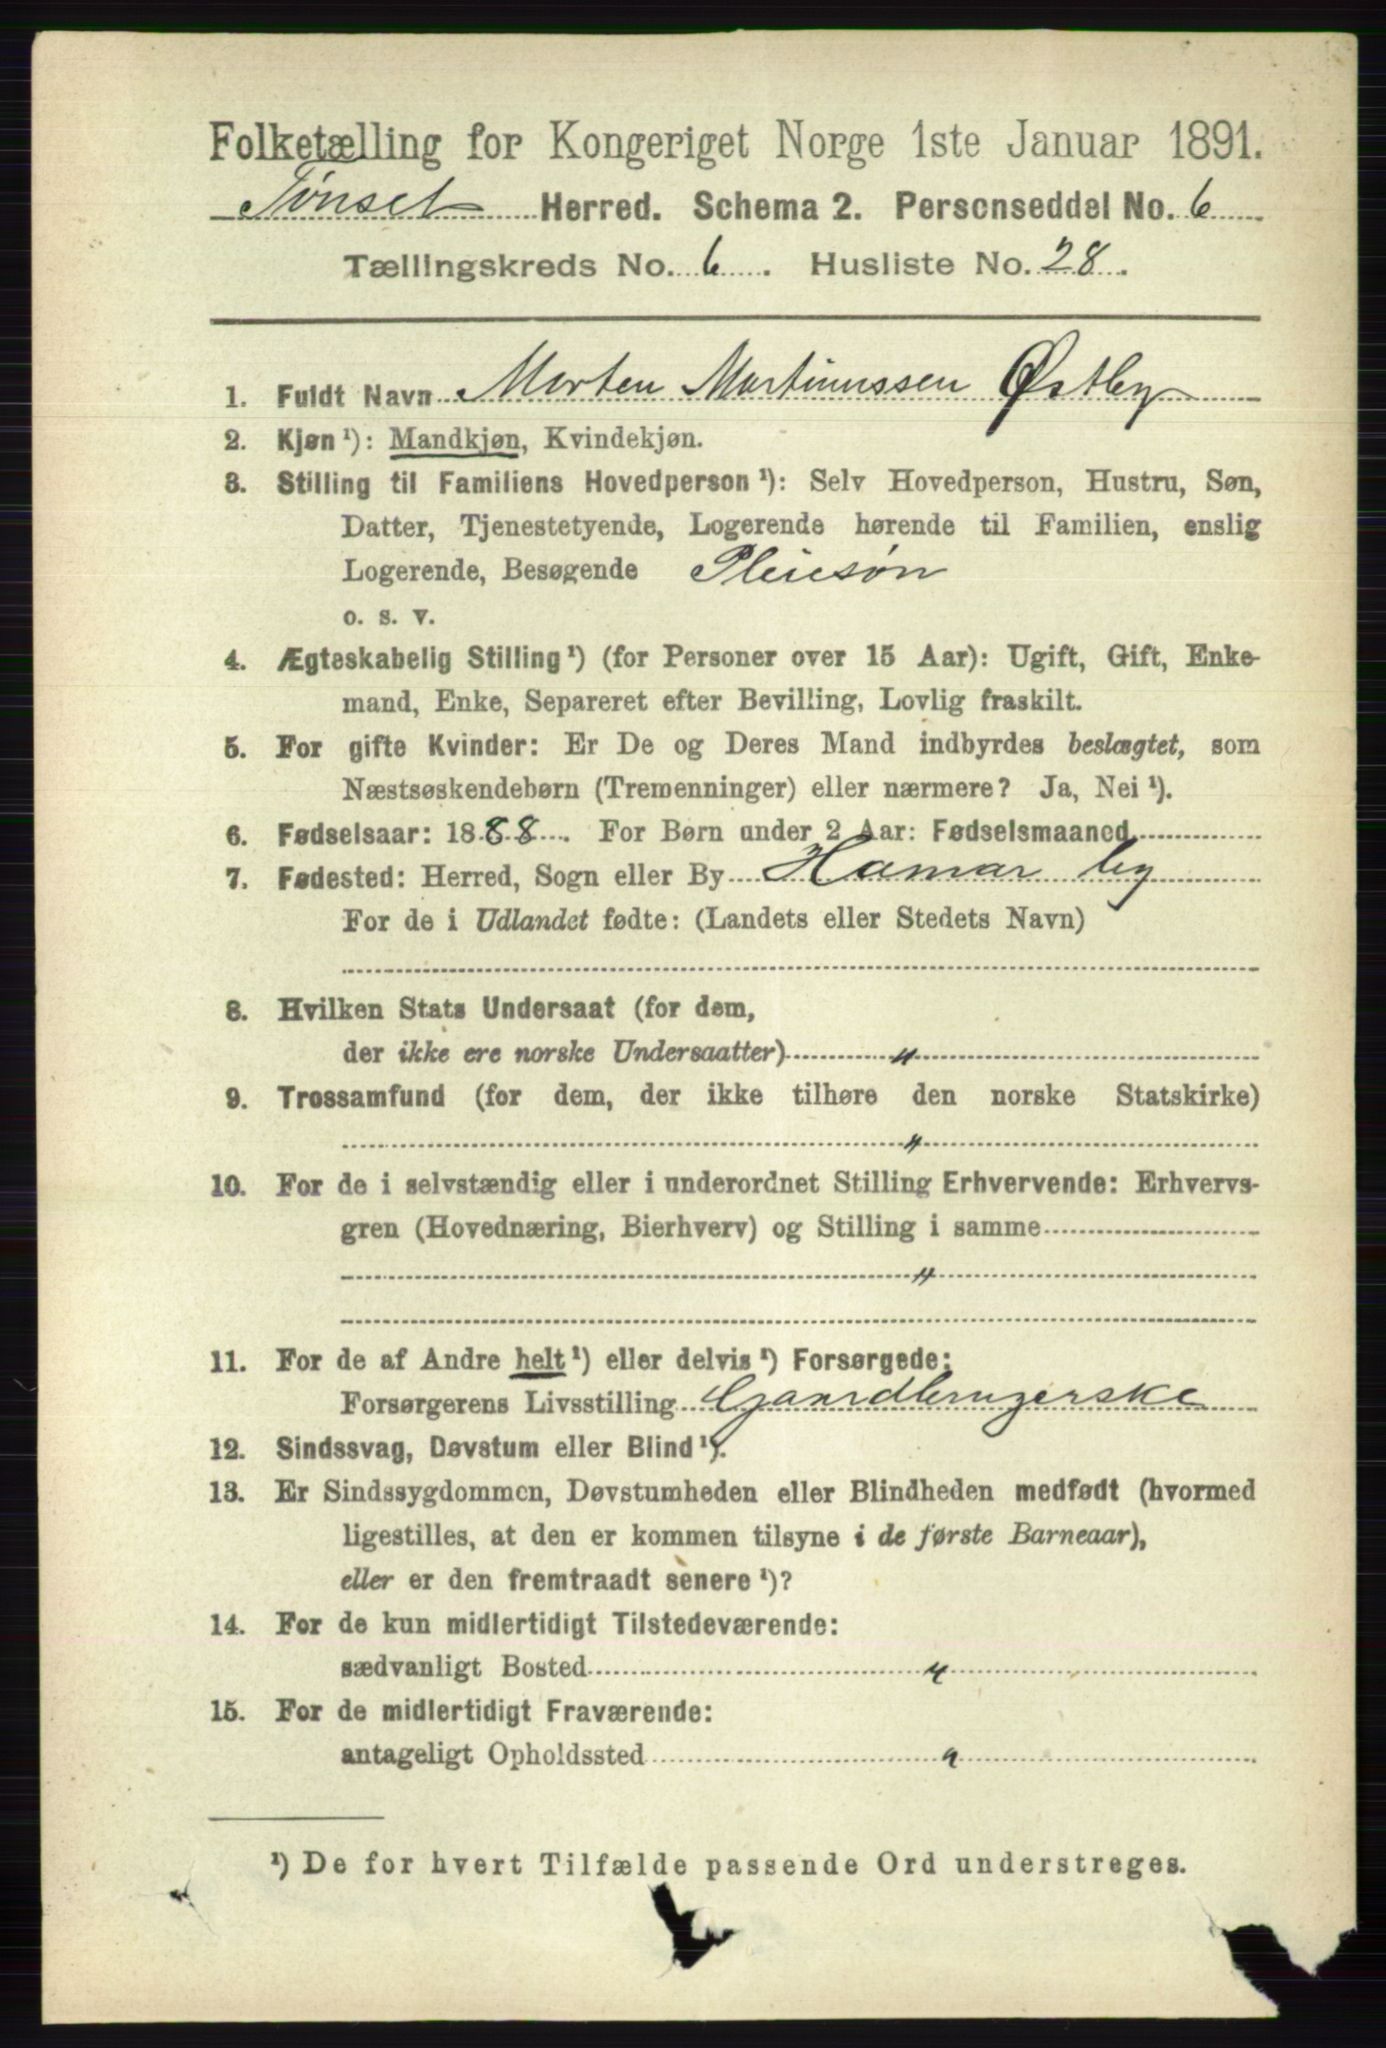 Folketælling for Kongeriget Norge 1ste Januar 1891.
Tønset Herred. Schema 2. Personseddel No. 6
Tællingskreds No. 6. Husliste No. 28.
1. Fuldt Navn Morten Martinussen Østby
2. Kjøn ¹): Mandkjøn, Kvindekjøn.
3. Stilling til Familiens Hovedperson ¹): Selv Hovedperson, Hustru, Søn,
Datter, Tjenestetyende, Logerende hørende til Familien, enslig
Logerende, Besøgende Pleiesøn
o. s. v.
4. Ægteskabelig Stilling ¹) (for Personer over 15 Aar): Ugift, Gift, Enke-
mand, Enke, Separeret efter Bevilling, Lovlig fraskilt.
5. For gifte Kvinder: Er De og Deres Mand indbyrdes beslægtet, som
Næstsøskendebørn (Tremenninger) eller nærmere? Ja, Nei ¹).
6. Fødselsaar: 1888. For Børn under 2 Aar: Fødselsmaaned
7. Fødested: Herred, Sogn eller By Hamar by
For de i Udlandet fødte: (Landets eller Stedets Navn)
8. Hvilken Stats Undersaat (for dem,
der ikke ere norske Undersaatter) "
9. Trossamfund (for dem, der ikke tilhøre den norske Statskirke)
"
10. For de i selvstændig eller i underordnet Stilling Erhvervende: Erhvervs-
gren (Hovednæring, Bierhverv) og Stilling i samme
"
11. For de af Andre helt ¹) eller delvis ¹) Forsørgede:
Forsørgerens Livsstilling Gaardbrugerske
12. Sindssvag, Døvstum eller Blind ¹).
13. Er Sindssygdommen, Døvstumheden eller Blindheden medfødt (hvormed
ligestilles, at den er kommen tilsyne i de første Barneaar),
eller er den fremtraadt senere ¹)?
14. For de kun midlertidigt Tilstedeværende:
sædvanligt Bosted "
15. For de midlertidigt Fraværende:
antageligt Opholdssted "
¹) De for hvert Tilfælde passende Ord understreges.